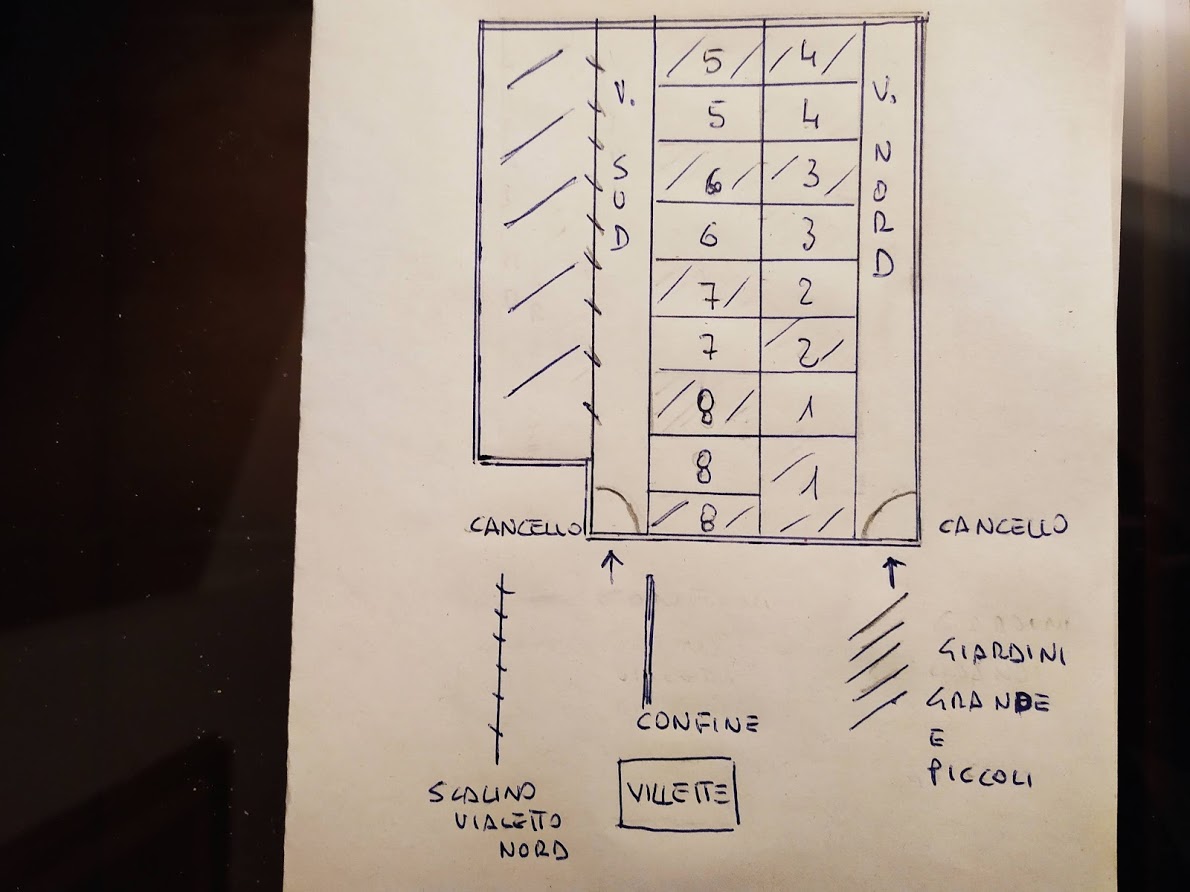 5 4
5 4
6 3
6 3
7 2
7 2
8 1
8 1
8
V. SUD
V. NORD
CANCELLO
CANCELLO
SCALINO
VIALETTO
NORD
CONFINE
VILLETTE
GIARDINI
GRANDE
E
PICCOLI